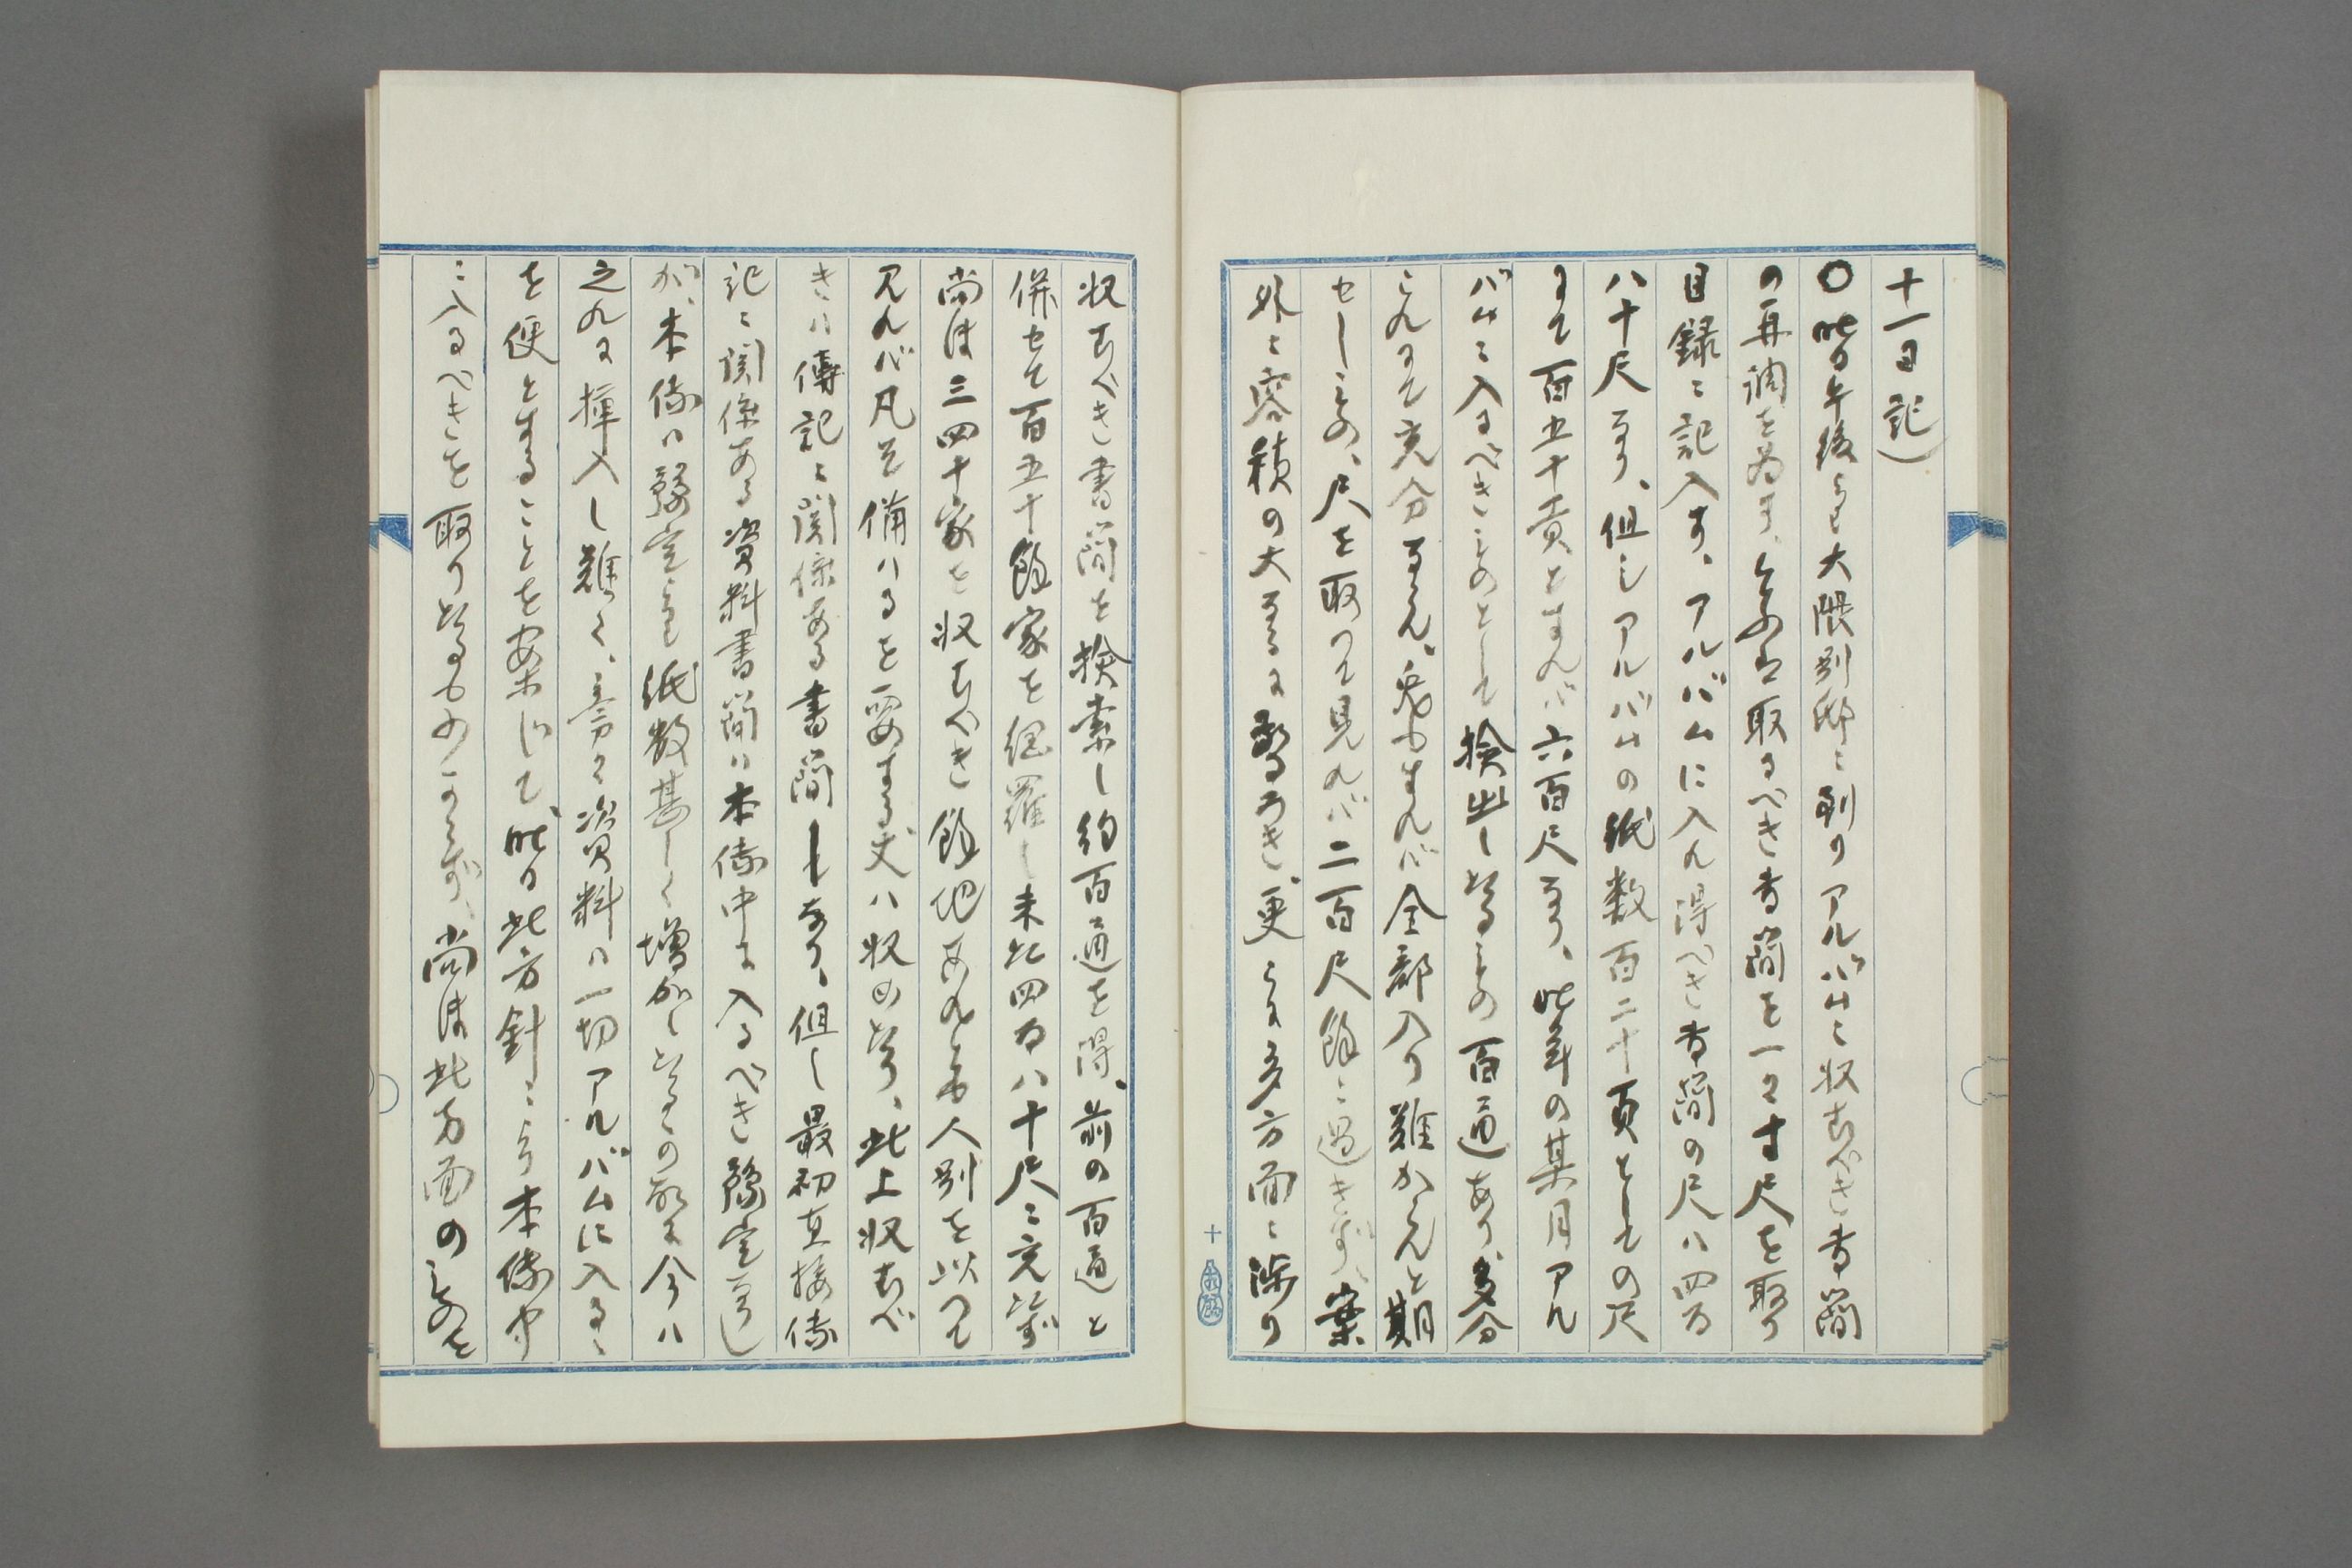 十一日記)
〇昨日午後より大隈別邸ニ到りアルバムニ収むべき書簡
の再調を為す、
取るべき書簡を一々寸尺を取り
目録ニ記入す、アルバムに入れ得べき書簡の尺ハ四百
八十尺なり、但しアルバムの紙数百二十頁としての尺
まて百五十頁とすれバ六百尺なり、此年の某月アル
バムニ入るべきものとして検出し置るもの百通あり、多分
これまて充分ならん、兎もすれバ全部入り難からんと期
せしもの、尺を取つて見れバ二百尺餘ニ過きず、案
外ニ容積の大なるに驚ろき、更らに多方面ニ渉り
収むべき書簡を検索し約百通を得、前の百通と
併せて百五十餘家を網羅し未た四百八十尺ニ充たず
尚ほ三四十家を収むべき餘地あれとも人別を以つて
見れバ凡そ備ハるを要する丈ハ収め置り、此上収むべ
きハ傳記ニ関係ある書簡しあり、但し最初直接傳
記ニ関係ある資料書簡ハ本傳中に入るべき豫定なりし
が、本傳ハ豫定より紙数甚しく増加し居るの故に今ハ
之れに挿入し難く、旁々資料ハ一切アルバムに入るゝ
を便とすることを案じて、昨日此方針ニより本傳中
ニ入るべきを取り置るもの少からず、尚ほ此方面のものを
十